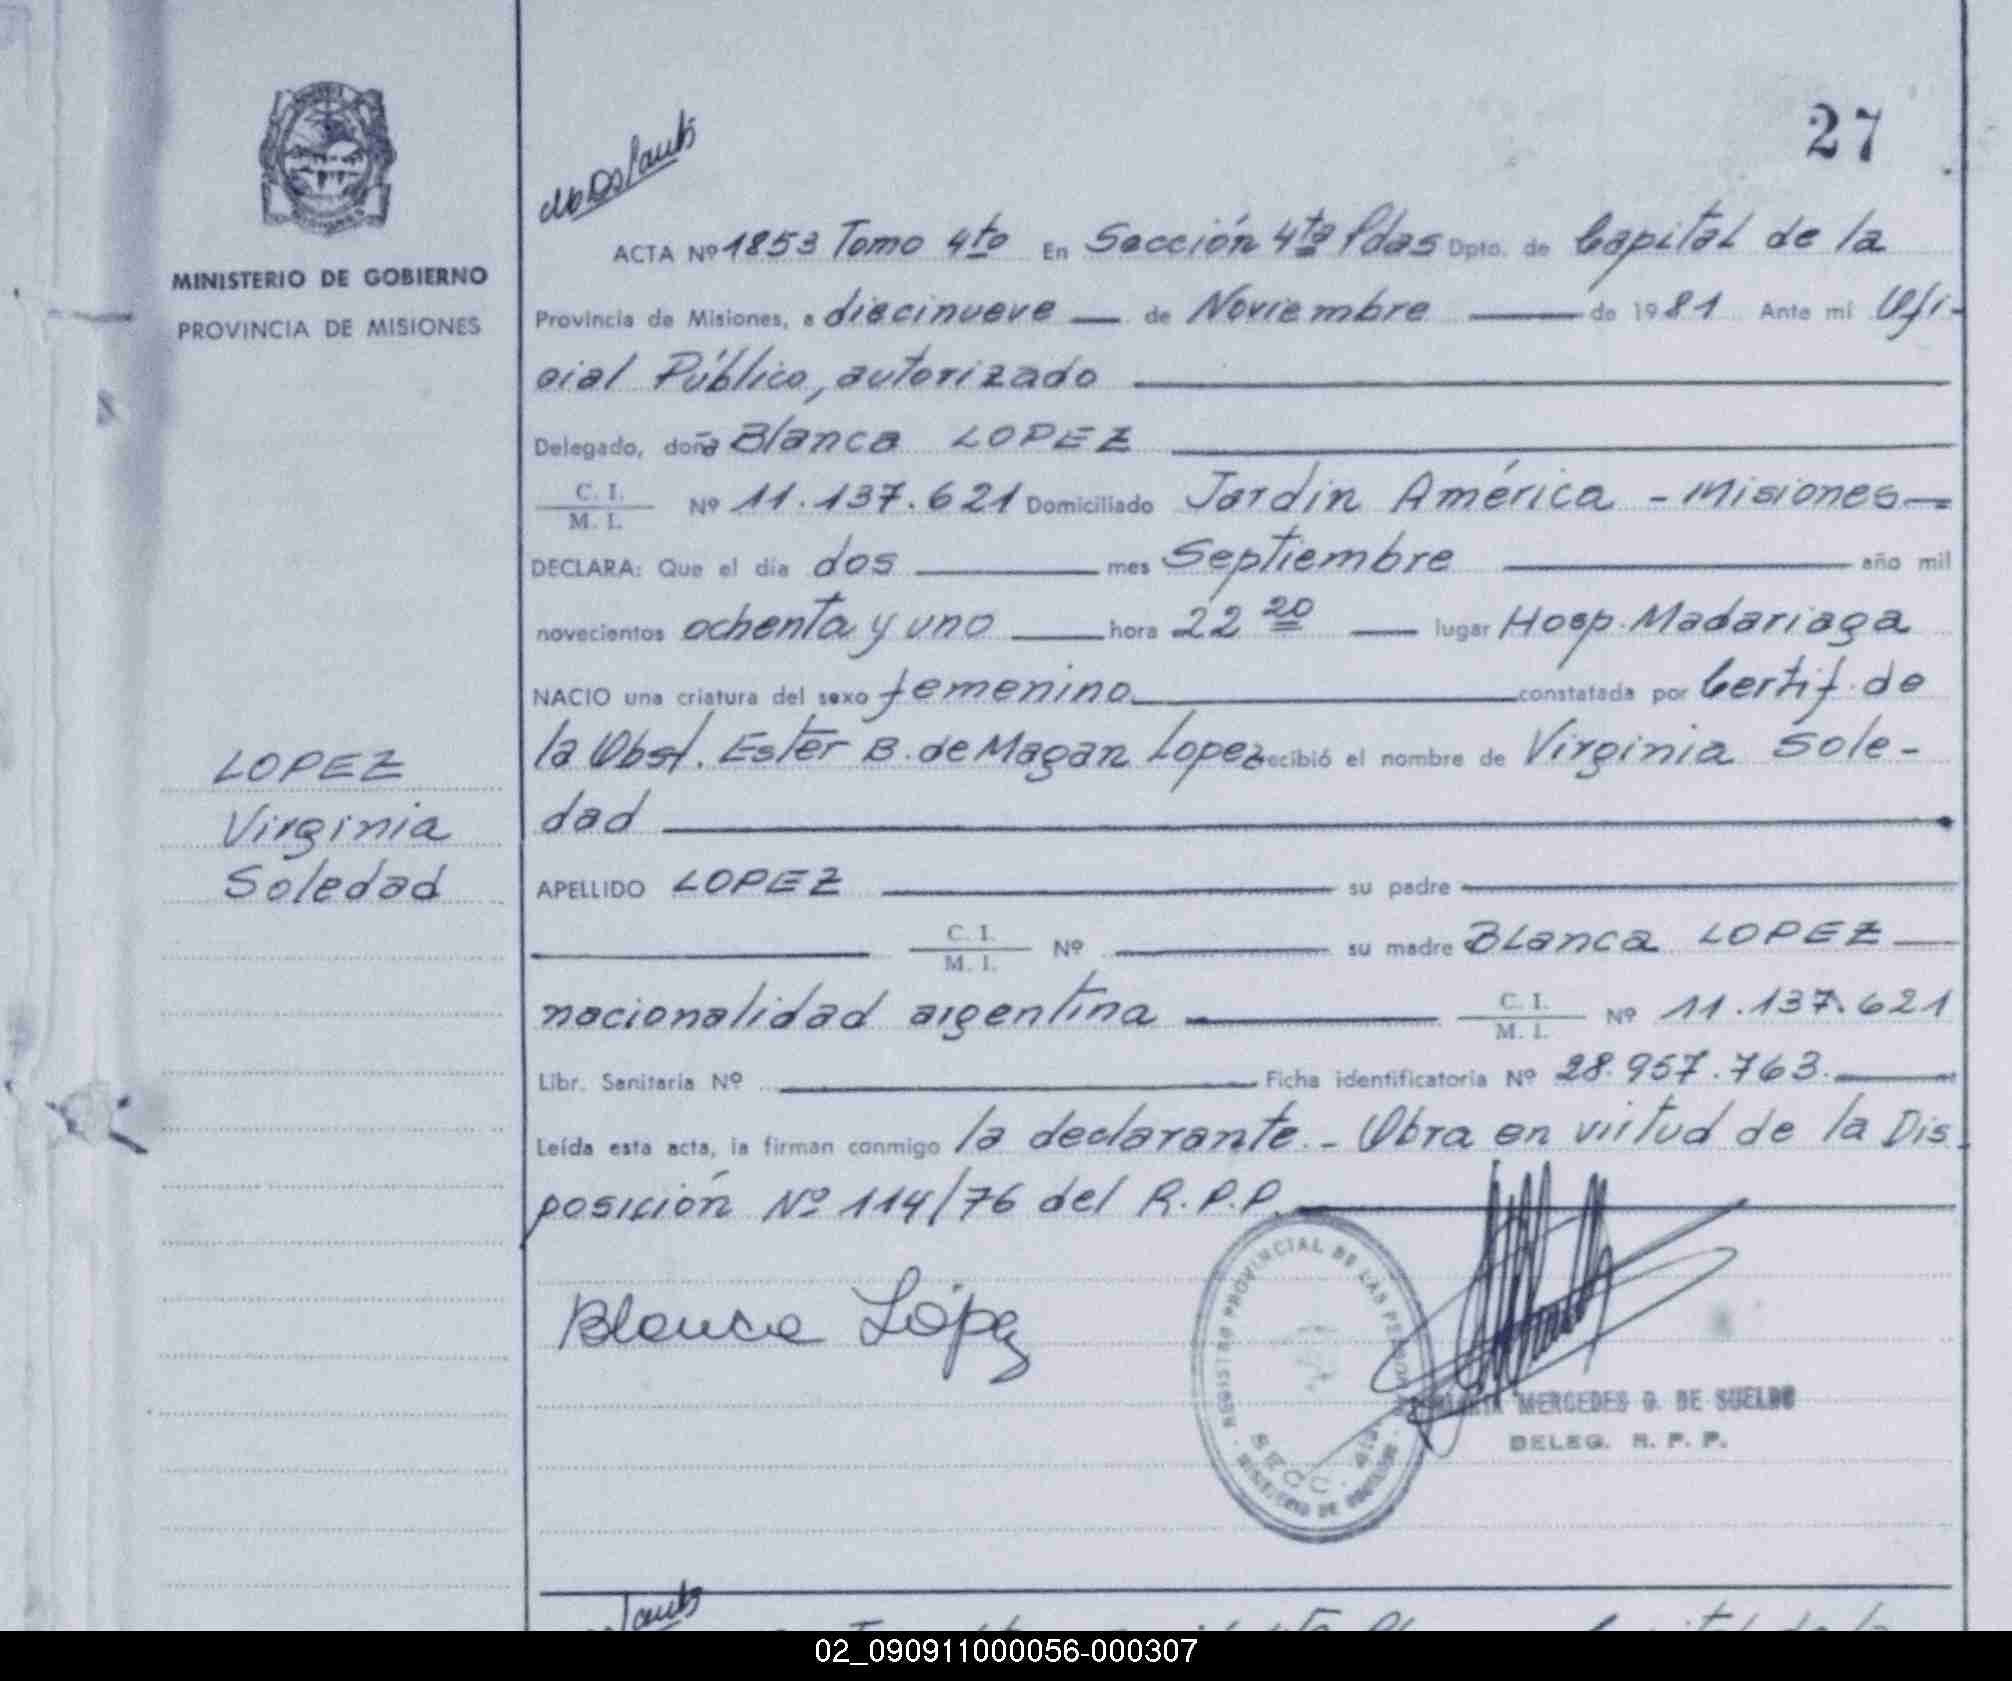 27
MINISTERIO DE GOBIERNO
PROVINCIA DE MISIONES
ACTA Nº 1853 Tomo 4to En Sección 4ta Pdas Dpto. de Capital de la
Provincia de Misiones, a diecinueve de Noviembre de 1981 Ante mi Ofi-
cial Público, autorizado
Delegado, doña Blanca LOPEZ
C. I.
M. I. Nº 11.137.621 Domiciliado Jardin América - Misiones
DECLARA: Que el día dos mes Septiembre año mil
novecientos ochenta y uno hora 22 20 lugar Hosp. Madariaga
NACIO una criatura del sexo femenino constatada por Certif. de
la Obst. Ester B. de Magan Lopez recibió el nombre de Virginia Sole-
dad
LOPEZ
Virginia
Soledad
APELLIDO LOPEZ su padre
C. I.
M. I. Nº su madre Blanca LOPEZ
nacionalidad argentina C. I.
M. I. Nº 11.137.621
Libr. Sanitaria Nº Ficha identificatoria Nº 28.957.763.
Leída esta acta, la firman conmigo la declarante.- Obra en virtud de la Dis-
posición Nº 114/76 del R.P.P.
Blanca López
REGISTRO PROVINCIAL DE LAS PERSONAS
SECC. 4ta
MINISTERIO DE GOBIERNO
MARIA MERCEDES G. DE SUELDO
DELEG. R. P. P.
02_090911000056-000307